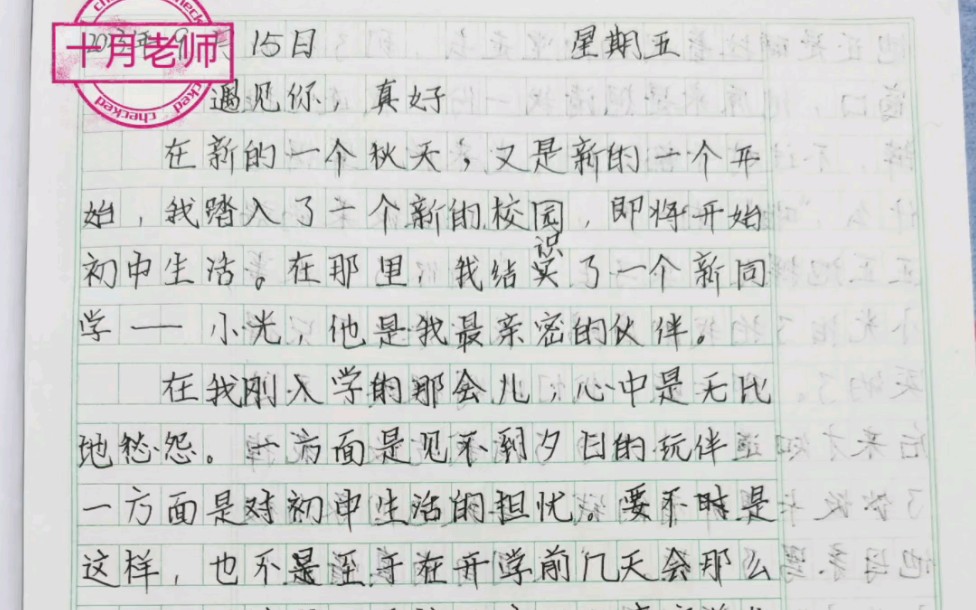 checked
十月老师
15日 星期五
checked
遇见你,真好
在新的一个秋天,又是新的一个开
始,我踏入了一个新的校园,即将开始
识
初中生活。在那里,我结实了一个新同
学——小光,他是我最亲密的伙伴。
在我刚入学的那会儿,心中是无比
地愁怨。一方面是见不到夕日的玩伴
一方面是对初中生活的担忧。要不时是
这样,也不是至于在开学前几天会那么